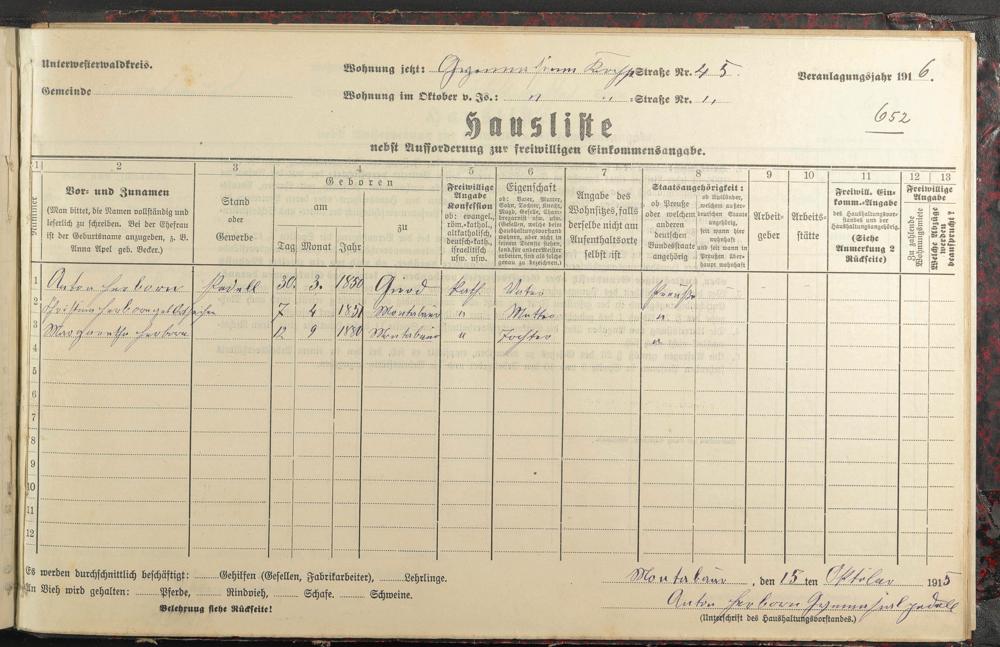 Unterwesterwaldkreis.
Wohnung jetzt: Straße Nr. 45.
Veranlagungsjahr 1916.
Gemeinde
Wohnung im Oktober v. Js.: " " =Straße Nr. "
652
Hausliste
nebst Aufforderung zur freiwilligen Einkommensangabe.
1 2 3 4 5 6 7 8 9 10 11 12 13
Nummer
Vor- und Zunamen
(Man bittet, die Namen vollständig und
leserlich zu schreiben. Bei der Ehefrau
ist der Geburtsname anzugeben, z. B.
Anna Apel geb. Becker.)
Stand
oder
Gewerbe
Geboren
am
Tag Monat Jahr
zu
Freiwillige
Angabe
Konfession
ob: evangel.,
röm.-kathol.,
altkatholisch,
deutsch-kath.,
israelitisch
usw. usw.
Eigenschaft
ob: Vater, Mutter,
Sohn, Tochter, Knecht,
Magd, Geselle,
Angabe des
Wohnsitzes, falls
derselbe nicht am
Aufenthaltsorte
selbst ist
Staatsangehörigkeit:
ob Preuße
oder welchem
anderen
deutschen
Bundesstaate
angehörig
ob Ausländer,
welchem außer-
deutschen Staate
angehörig,
seit wann hier
wohnhaft
und seit wann in
Preußen über-
haupt wohnhaft
Arbeit-
geber
Arbeits-
stätte
Freiwill. Ein-
komm.-Angabe
des Haushaltungsvor-
standes und der
Haushaltungsangehörig.
(Siehe
Anmerkung 2
Rückseite)
Freiwillige
Angabe
Zu zahlende
Wohnungsmiete
Welche Abzüge
werden
beansprucht?
1 Anton Herborn Pedell 30. 3. 1850 Girod kath. Vater Preuße
2 Christina Herborn geb. 7 4 1851 Montabaur " Mutter "
3 Margaretha Herborn 12 9 1880 Montabaur " Tochter "
4
5
6
7
8
9
10
11
12
Es werden durchschnittlich beschäftigt: Gehilfen (Gesellen, Fabrikarbeiter), Lehrlinge.
An Vieh wird gehalten: Pferde, Rindvieh, Schafe. Schweine.
Belehrung siehe Rückseite!
Montabaur, den 15 ten Oktober 1915
Anton Herborn Gymnasialpedell
(Unterschrift des Haushaltungsvorstandes.)